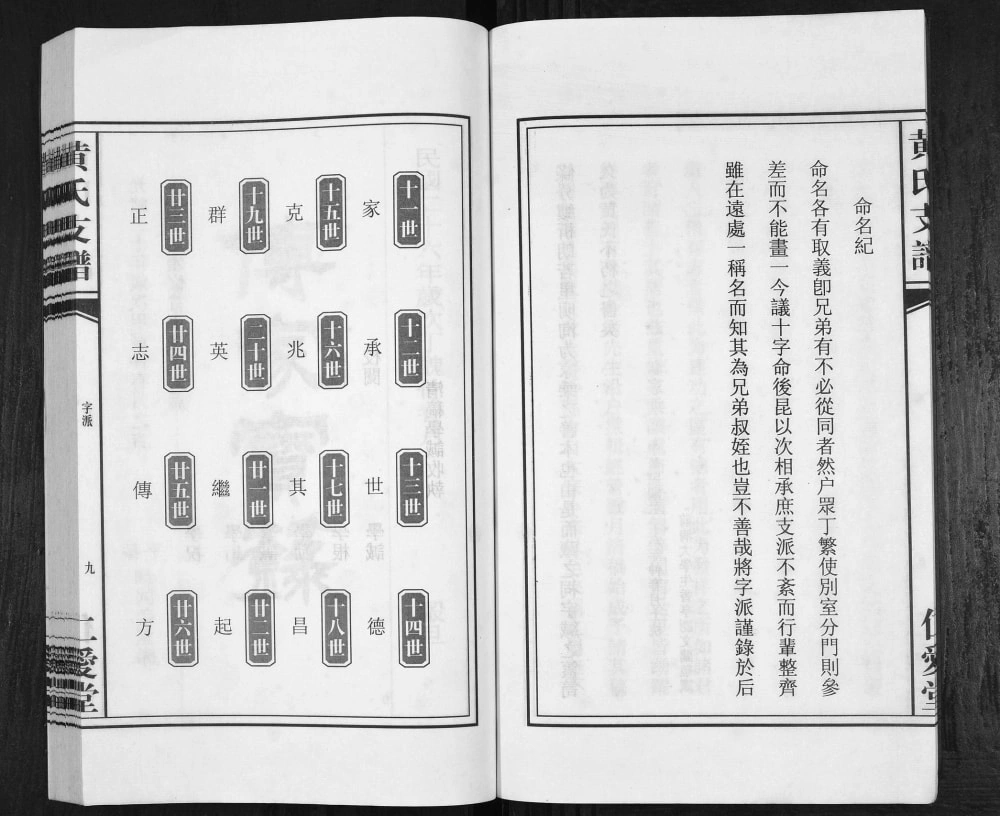 黄氏支譜
命名紀
命名各有取義卽兄弟有不必從同者然户眾丁繁使別室分門則參
差而不能畫一今議十字命後昆以次相承庶支派不紊而行輩整齊
雖在遠處一稱名而知其為兄弟叔姪也豈不善哉將字派謹錄於后
仁愛堂
十一世 十二世 十三世 十四世
家 承 世 德
十五世 十六世 十七世 十八世
克 兆 其 昌
十九世 二十世 廿一世 廿二世
群 英 繼 起
廿三世 廿四世 廿五世 廿六世
正 志 傳 方
黄氏支譜
字派
九
仁愛堂